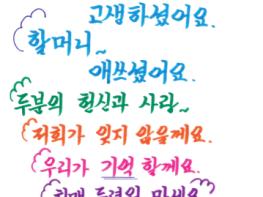 고생하셨어요.
할머니~
애쓰셨어요.
두분의 헌신과 사랑~
저희가 잊지 않을께요.
우리가 기억 할께요.